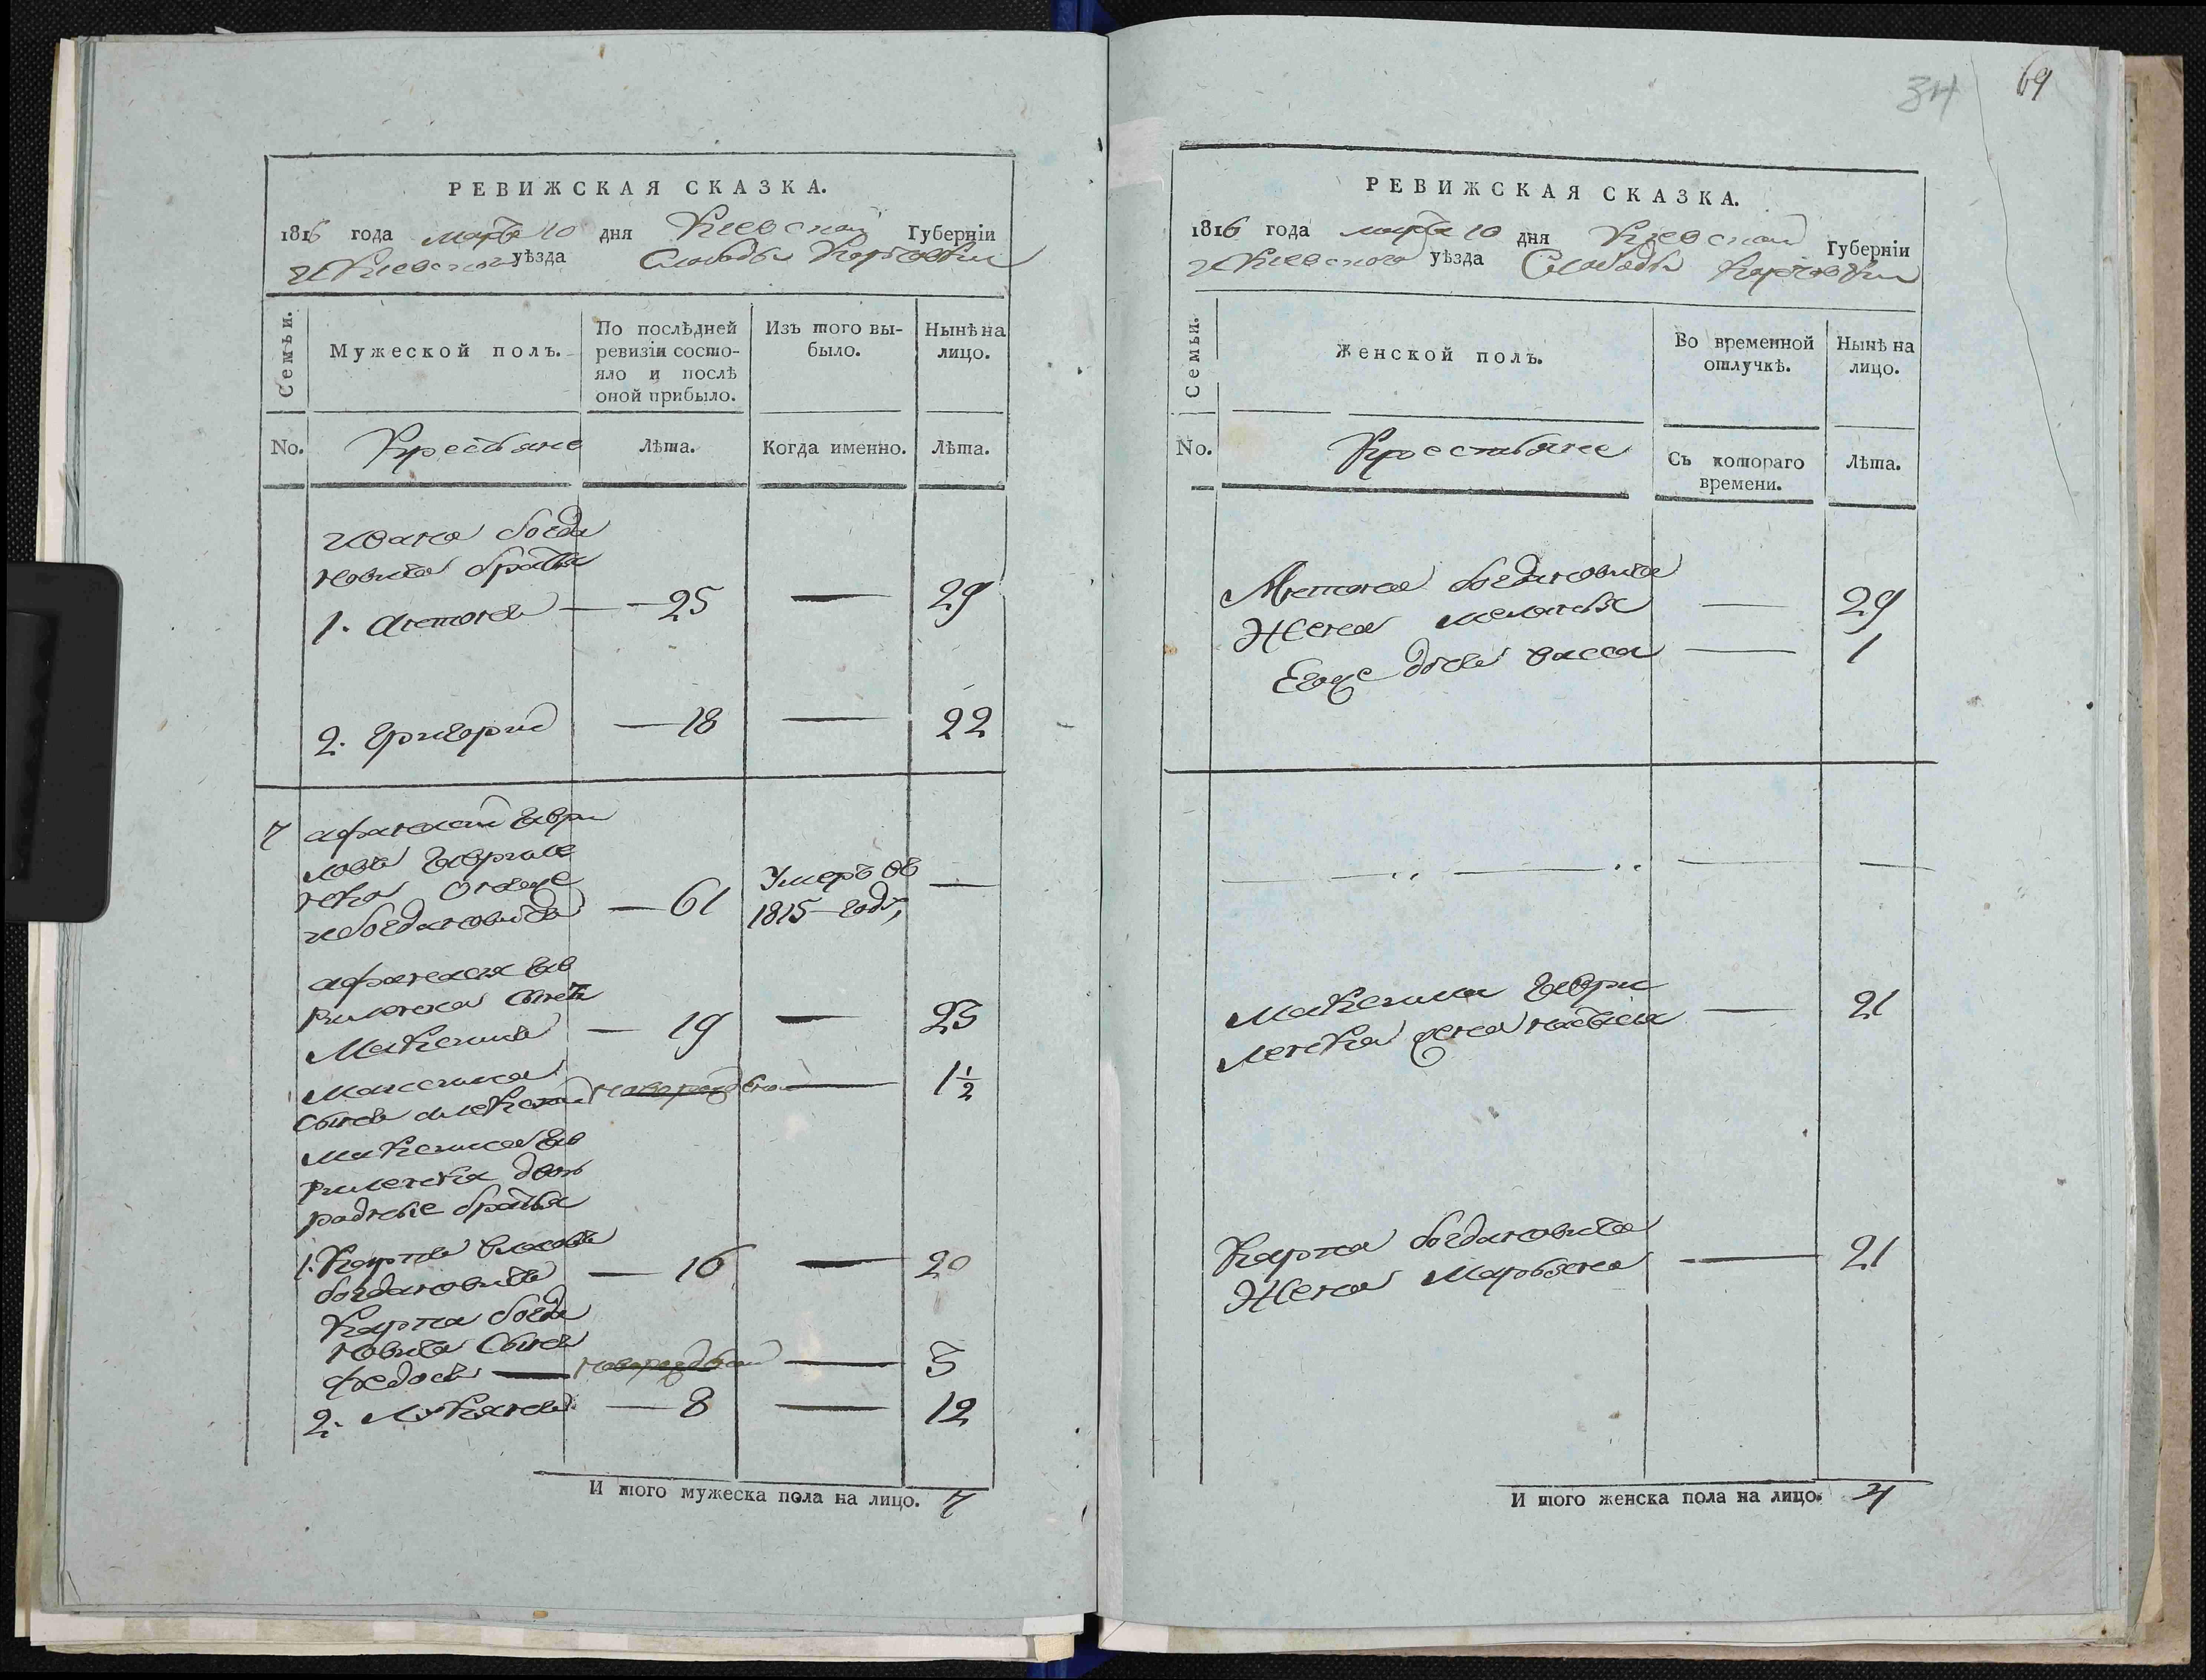 РЕВИЖСКАЯ СКАЗКА.
1816 года марта 10 дня Киевской Губерніи
и Киевского уѣзда Слободы
Семьи.
Мужеской полъ.
По послѣдней ревизіи состояло и послѣ оной прибыло.
Изъ того выбыло.
Нынѣ на лицо.
No.
Крестьяне
Лѣта.
Когда именно.
Лѣта.
Ивана Богда
новича братья
1. Антонъ — 25 — 29
2. Григорий — 18 — 22
7 Афанасий Гаври
ловъ Гавриле
нко онъже
и Богдановичъ — 61 Умеръ въ 1815 годѣ —
Афанасия Гав
риленка сынъ
Максимъ — 19 — 23
Максима
сынъ Алексей новорожденой — 1½
Максима Гав
риленка двою
родные братья
1. Карпъ Власовъ
Богдановичъ — 16 — 20
Карпа Богда
новича сынъ
Федосъ — новорожденой — 3
2. Лукянъ — 8 — 12
И того мужеска пола на лицо. 7
34 69
РЕВИЖСКАЯ СКАЗКА.
1816 года марта 10 дня Киевской Губерніи
и Киевского уѣзда Слободы
Семьи.
Женской полъ.
Во временной отлучкѣ.
Нынѣ на лицо.
No.
Крестьяне
Съ котораго времени.
Лѣта.
Антона Богдановича
Жена Меланья — 29
Егоже дочь Васса — 1
Максима Гаври
ленка жена Настасия — 21
Карпа Богдановича
Жена Марьяна — 21
И того женска пола на лицо. 4